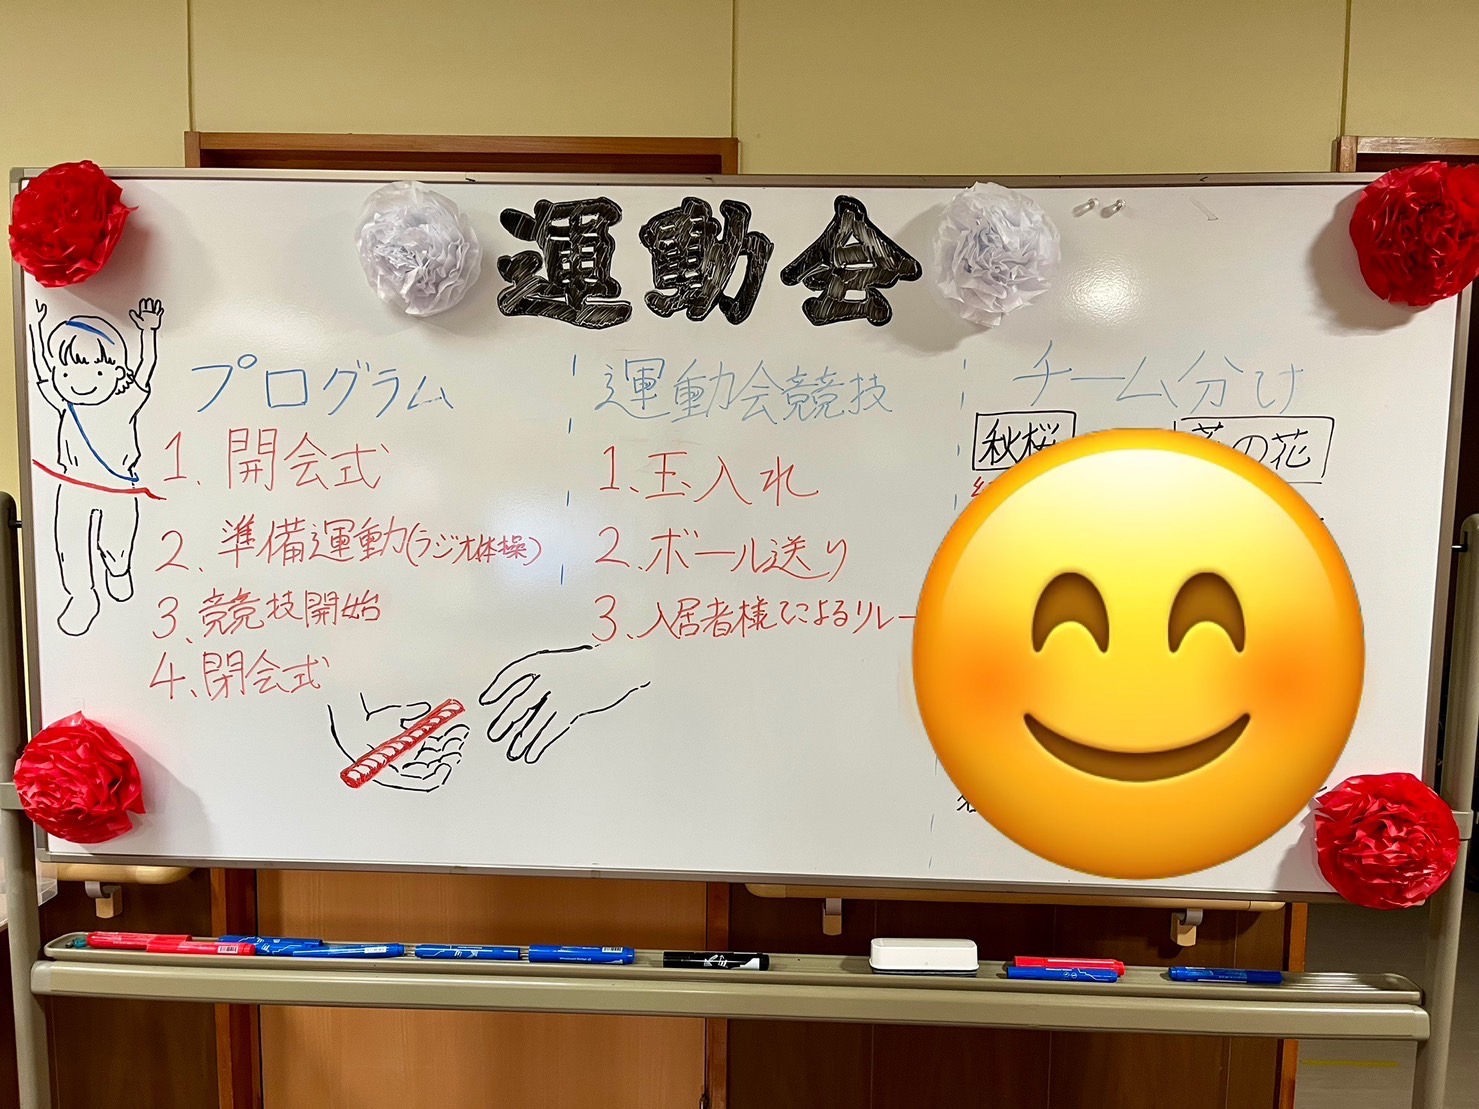 運動会
プログラム
1. 開会式
2. 準備運動(ラジオ体操)
3. 競技開始
4. 閉会式
運動会競技
1. 玉入れ
2. ボール送り
3. 入居者様によるリレー
チーム分け
秋桜
の花